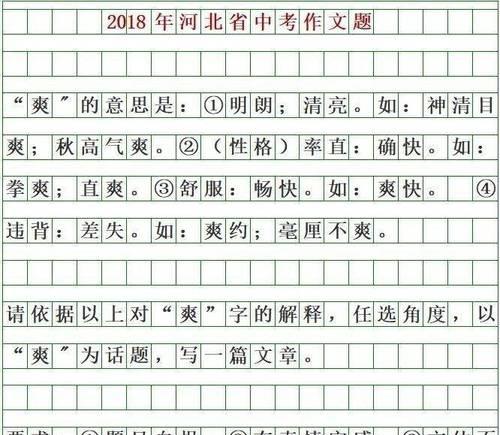 2018年河北省中考作文题
“爽〞的意思是：①明朗；清亮。如：神清目
爽；秋高气爽。②（性格）率直：确快。如：
拳爽；直爽。③舒服：畅快。如：爽快。 ④
违背：差失。如：爽约；毫厘不爽。
请依据以上对“爽”字的解释，任选角度，以
“爽〞为话题，写一篇文章。